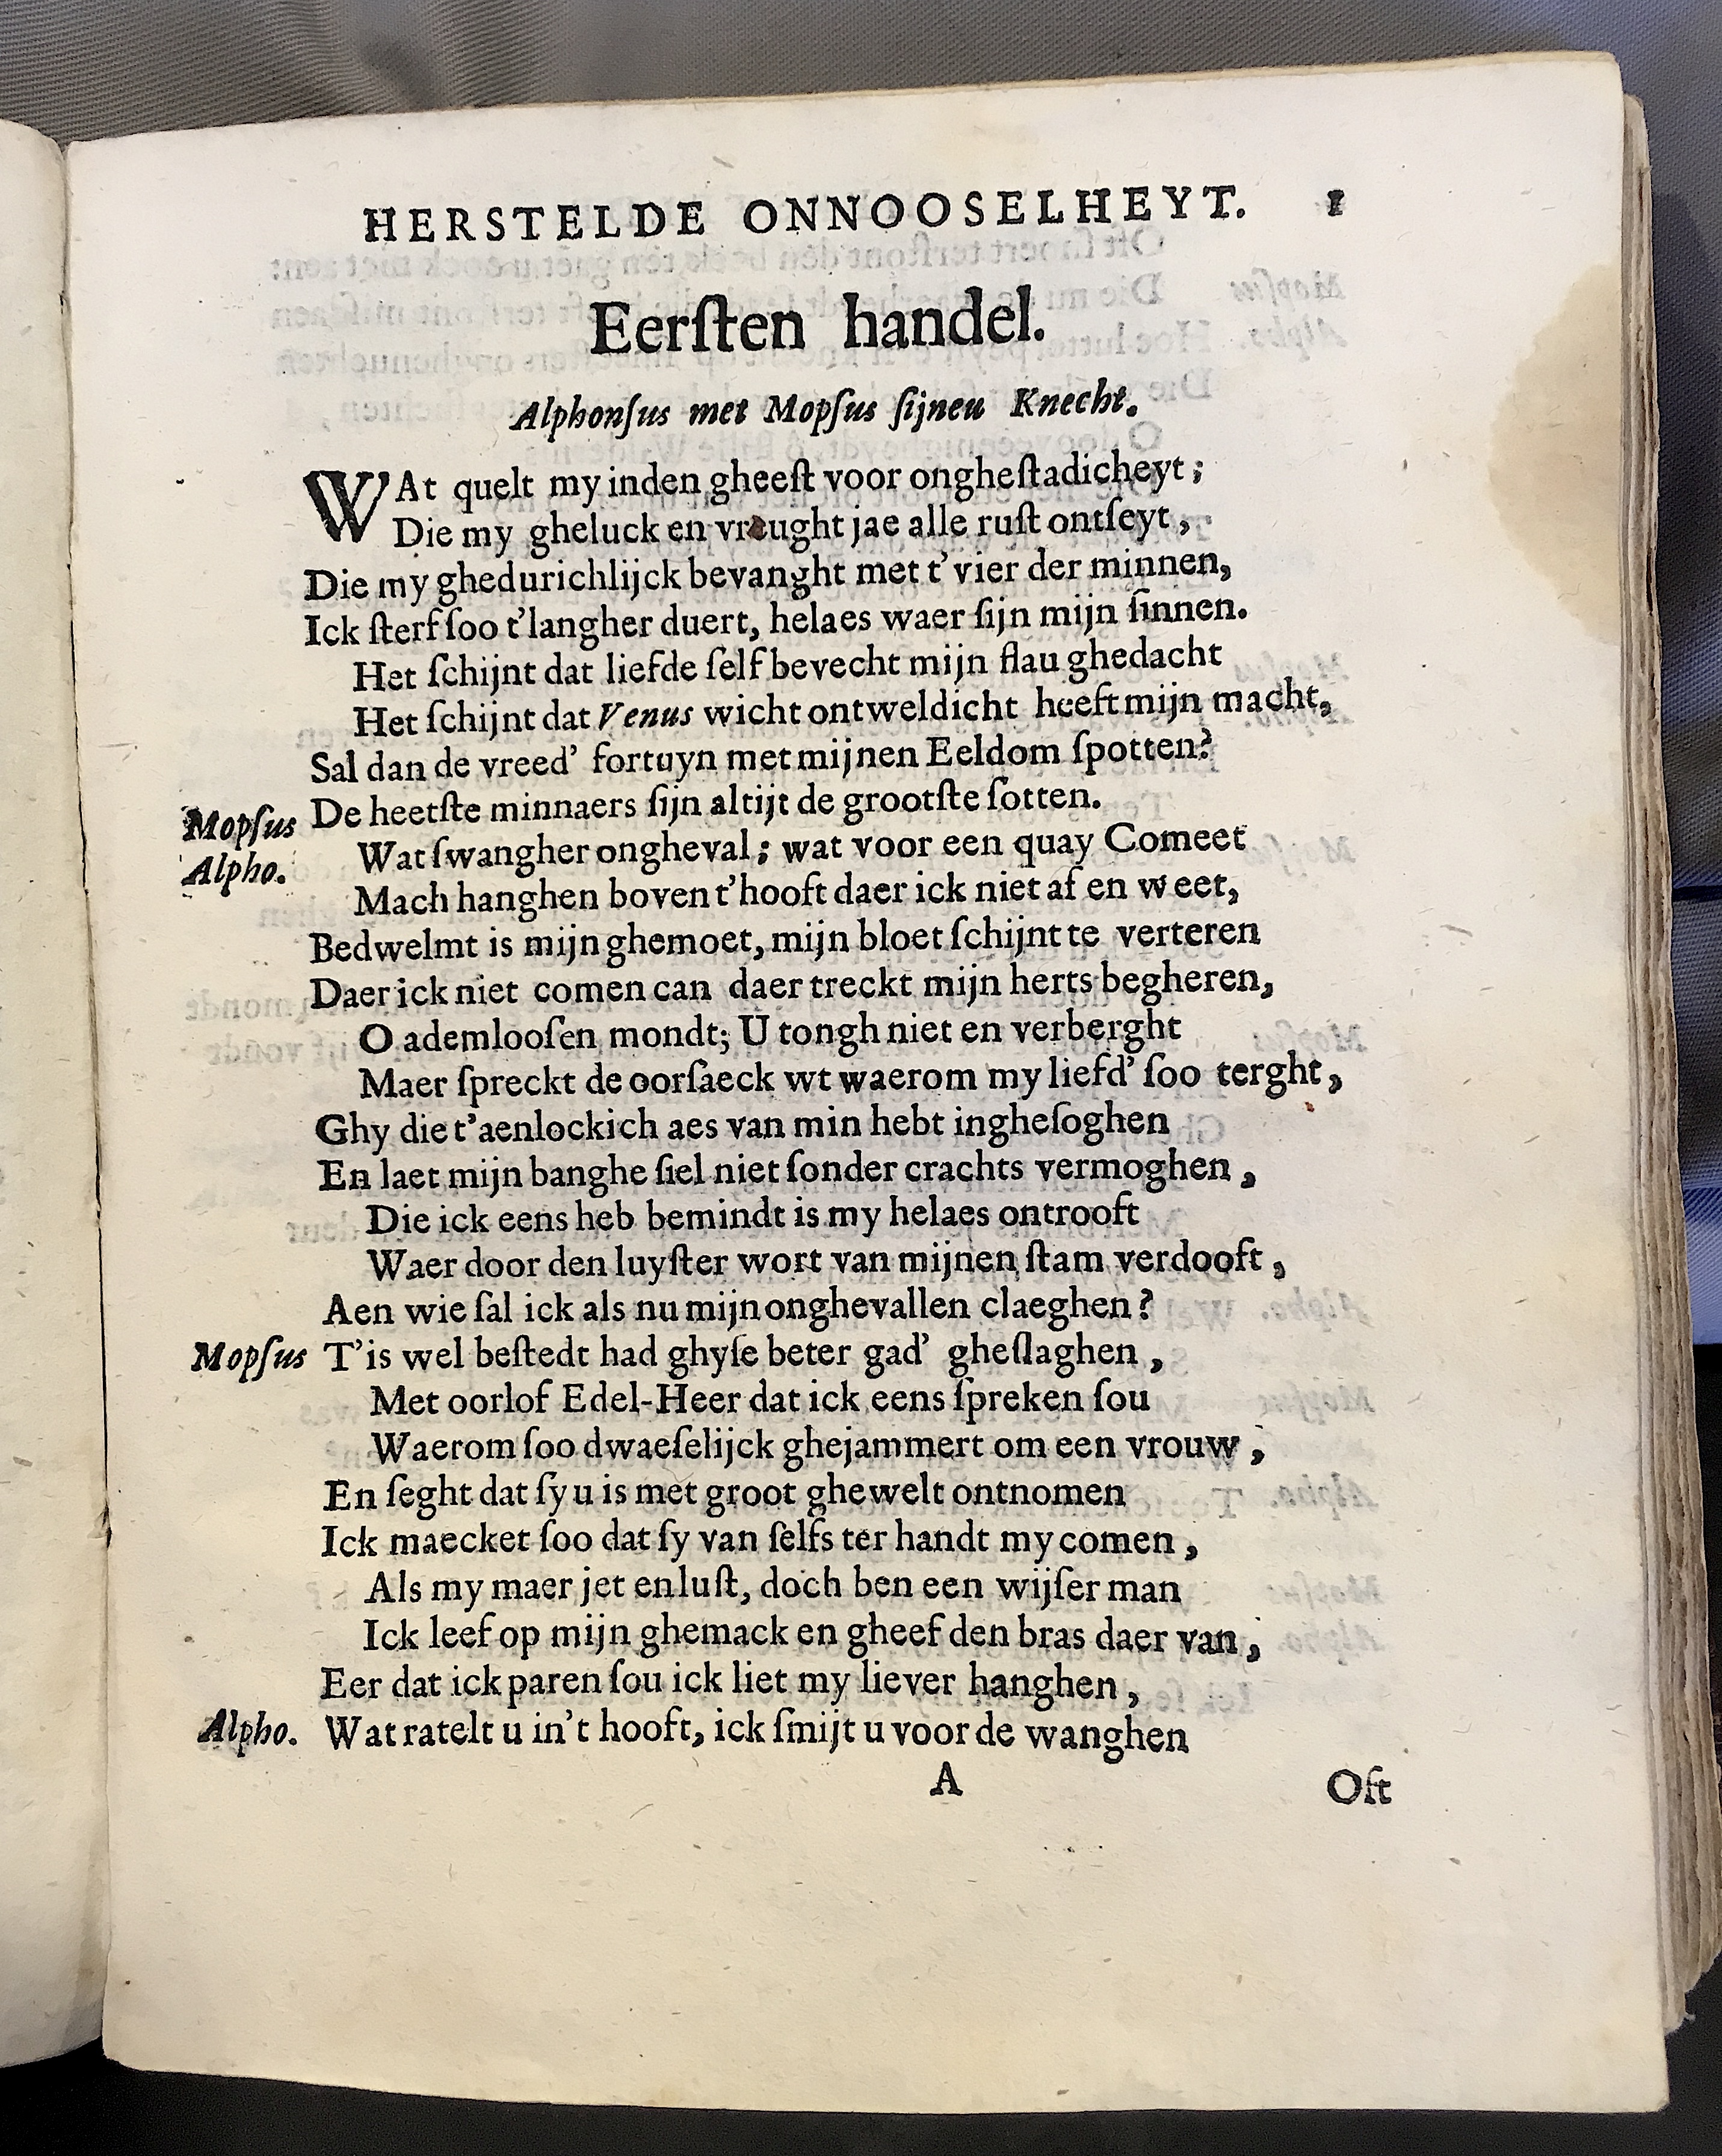 HERSTELDE ONNOOSELHEYT. 1
Eerſten handel.
Alphonſus met Mopſus ſijneu Knecht.
WAt quelt my inden gheeſt voor ongheſtadicheyt;
Die my gheluck en vreught jae alle ruſt ontſeyt,
Die my ghedurichlijck bevanght met t'vier der minnen,
Ick ſterf ſoo t'langher duert, helaes waer ſijn mijn ſinnen.
Het ſchijnt dat liefde ſelf bevecht mijn flau ghedacht
Het ſchijnt dat Venus wicht ontweldicht heeft mijn macht,
Sal dan de vreed' fortuyn met mijnen Eeldom ſpotten?
Mopſus De heetſte minnaers ſijn altijt de grootſte ſotten.
Alpho. Wat ſwangher ongheval; wat voor een quay Comeet
Mach hanghen boven t'hooft daer ick niet af en weet,
Bedwelmt is mijn ghemoet, mijn bloet ſchijnt te verteren
Daer ick niet comen can daer treckt mijn herts begheren,
O ademlooſen mondt; U tongh niet en verberght
Maer ſpreckt de oorſaeck wt waerom my liefd' ſoo terght,
Ghy die t'aenlockich aes van min hebt ingheſoghen
En laet mijn banghe ſiel niet ſonder crachts vermoghen,
Die ick eens heb bemindt is my helaes ontrooft
Waer door den luyſter wort van mijnen ſtam verdooft,
Aen wie ſal ick als nu mijn onghevallen claeghen?
Mopſus T'is wel beſtedt had ghyſe beter gad' gheſlaghen,
Met oorlof Edel-Heer dat ick eens ſpreken ſou
Waerom ſoo dwaeſelijck ghejammert om een vrouw,
En ſeght dat ſy u is met groot ghewelt ontnomen
Ick maecket ſoo dat ſy van ſelfs ter handt my comen,
Als my maer jet en luſt, doch ben een wijſer man
Ick leef op mijn ghemack en gheef den bras daer van,
Eer dat ick paren ſou ick liet my liever hanghen,
Alpho. Wat ratelt u in't hooft, ick ſmijt u voor de wanghen
A Oft